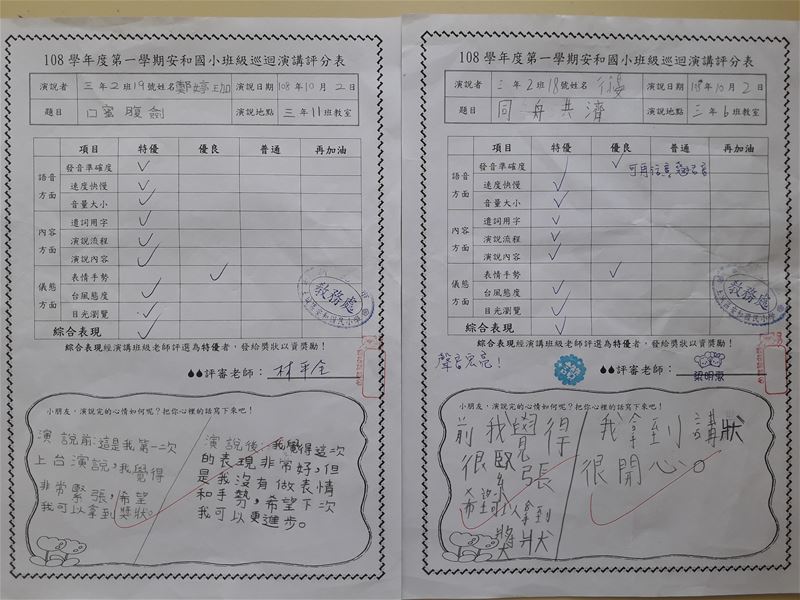 108 學年度第一學期安和國小班級巡迴演講評分表
演說者 三年2班19號姓名 鄭婷珈 演說日期 108年10月2日
題目 口蜜腹劍 演說地點 三年11班教室
項目 特優 優良 普通 再加油
語音方面 發音準確度 ✓
速度快慢 ✓
音量大小 ✓
內容方面 遣詞用字 ✓
演說流程 ✓
演說內容 ✓
儀態方面 表情手勢 ✓
台風態度 ✓
目光瀏覽 ✓
綜合表現 ✓
教務處
綜合表現經演講班級老師評選為特優者,發給獎狀以資獎勵!
評審老師:
小朋友,演說完的心情如何呢?把你心裡的話寫下來吧!
演說前:這是我第一次
上台演說,我覺得
非常緊張,希望
我可以拿到獎狀。
演說後:我覺得這次
的表現非常好,但
是我沒有做表情
和手勢,希望下次
我可以更進步。
108 學年度第一學期安和國小班級巡迴演講評分表
演說者 三年2班18號姓名 演說日期 108年10月2日
題目 同舟共濟 演說地點 三年6班教室
項目 特優 優良 普通 再加油
語音方面 發音準確度 ✓ 可再注意
速度快慢 ✓
音量大小 ✓
內容方面 遣詞用字 ✓
演說流程 ✓
演說內容 ✓
儀態方面 表情手勢 ✓
台風態度 ✓
目光瀏覽 ✓
綜合表現 ✓
教務處
綜合表現經演講班級老師評選為特優者,發給獎狀以資獎勵!
聲音宏亮!
評審老師:
小朋友,演說完的心情如何呢?把你心裡的話寫下來吧!
前我覺得
很緊張
希望可以拿到
獎狀
我拿到講狀
很開心。